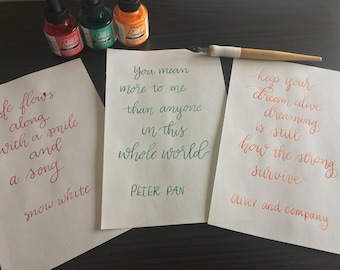 life flows
along
with a smile
and
a song
snow white
You mean
more to me
than anyone
in this
whole world
PETER PAN
keep your
dream alive
dreaming
is still
how the strong
survive
Oliver and company